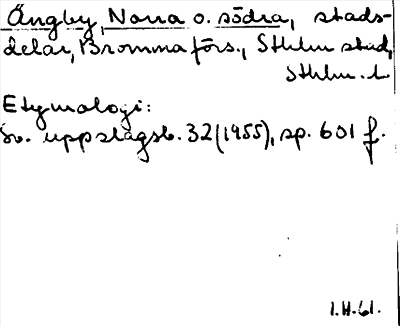 Ängby, Norra o. södra, stads-
delar, Bromma förs., Sthlm stad,
Sthlm. l.
Etymologi:
Sv. uppslagsb. 32 (1955), sp. 601 f.
1.H.61.